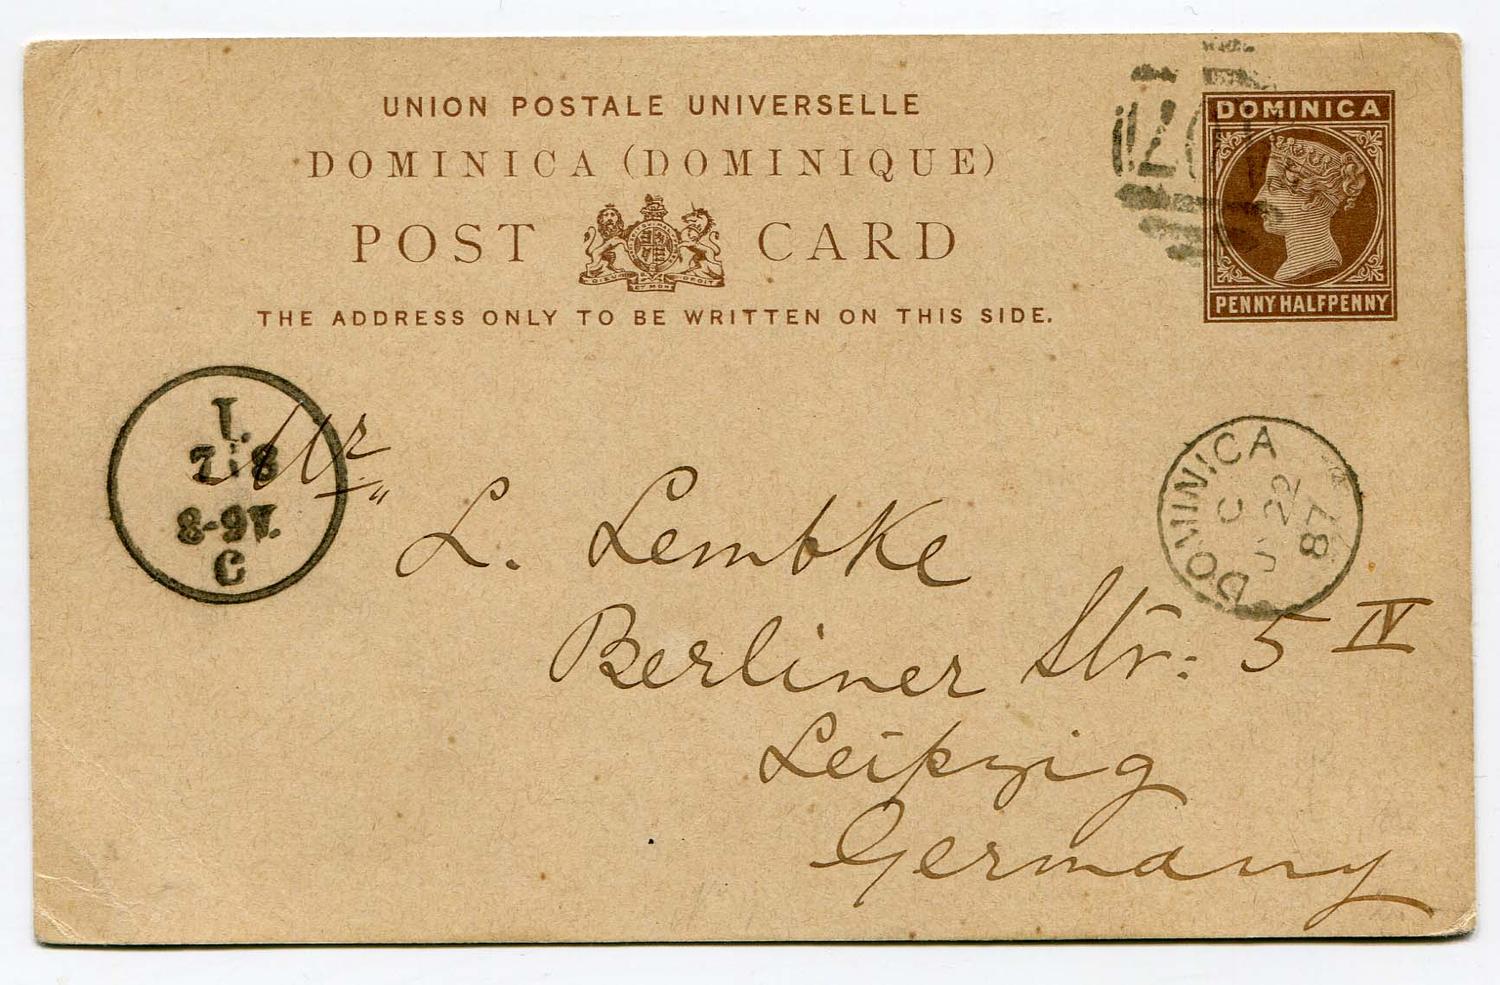 UNION POSTALE UNIVERSELLE
DOMINICA
DOMINICA (DOMINIQUE)
POST CARD
PENNY HALFPENNY
THE ADDRESS ONLY TO BE WRITTEN ON THIS SIDE.
Mr
L. Lembke
Berliner Str: 5 IV
Leipzig
Germany
7 8
8-9V.
C
DOMINICA
C
22
87